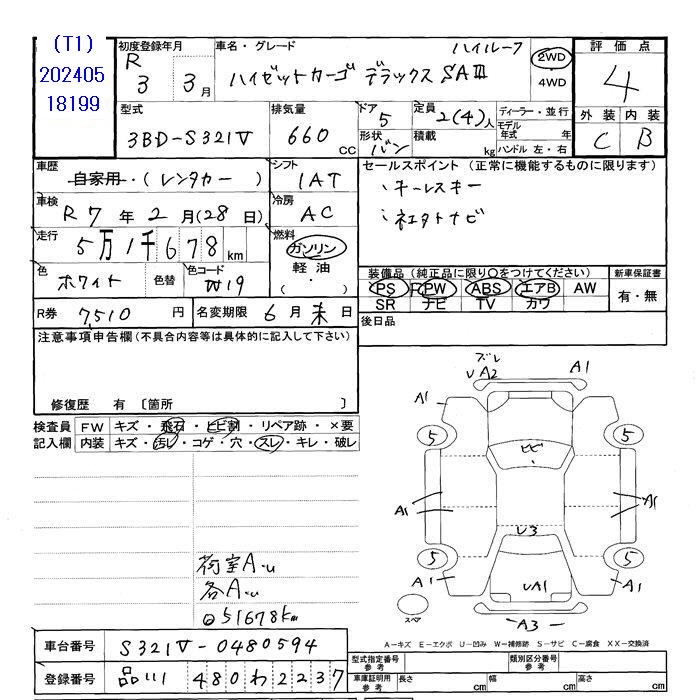 (T1)
202405
18199
初度登録年月
R
3 3月
車名・グレード
ハイルーフ
ハイゼットカーゴ デラックスSAⅢ
2WD
4WD
評価点
4
外装 内装
C B
型式
3BD-S321V
排気量
660 CC
ドア
5
形状
バン
定員
2(4)人
積載
kg
ディーラー・並行
モデル年式 年
ハンドル 左・右
車歴
自家用・(レンタカー)
シフト
1AT
車検
R7年2月(28日)
冷房
AC
走行
5万1千678km
燃料
ガソリン
軽油
(・)
色
ホワイト
色替
色コード
W19
R券
7,510 円
名変期限
6月末日
セールスポイント (正常に機能するものに限ります)
・キーレスキー
・社外ナビ
装備品 (純正品に限り○をつけてください)
PS PW ABS エアB AW
SR ナビ TV カワ
新車保証書
有・無
後日品
注意事項申告欄 (不具合内容等は具体的に記入して下さい)
修復歴 有 〔箇所 〕
検査員記入欄
FW キズ・飛石・ヒビ割・リペア跡・×要
内装 キズ・汚レ・コゲ・穴・スレ・キレ・破レ
荷室A-u
各A-u
51678km
ズレ
UA2 A1
A1
5 5
ヒビ
A1 A1
U3
5 5
A1 UA1 A1
スペア
A3
A-キズ E-エクボ U-凹み W-補修跡 S-サビ C-腐食 XX-交換済
車台番号
S321V-0480594
登録番号
品川 480 わ 2237
型式指定番号 参考
類別区分番号 参考
車庫証明用 参考
長さ cm 幅 cm 高さ cm